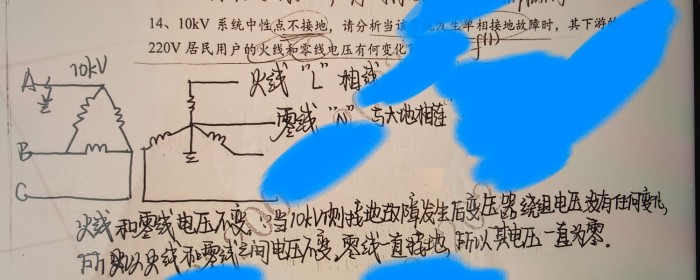 14、10kV 系统中性点不接地，请分析当该 发生单相接地故障时，其下游的
220V 居民用户的火线和零线电压有何变化
f(1)
10kV
A
火线 "L" 相线
零线 "N" 与大地相连
B
C
火线和零线电压不变。当10kV侧接地故障发生后变压器绕组电压没有任何变化,
所以火线和零线之间电压不变,零线一直接地,所以其电压一直为零.